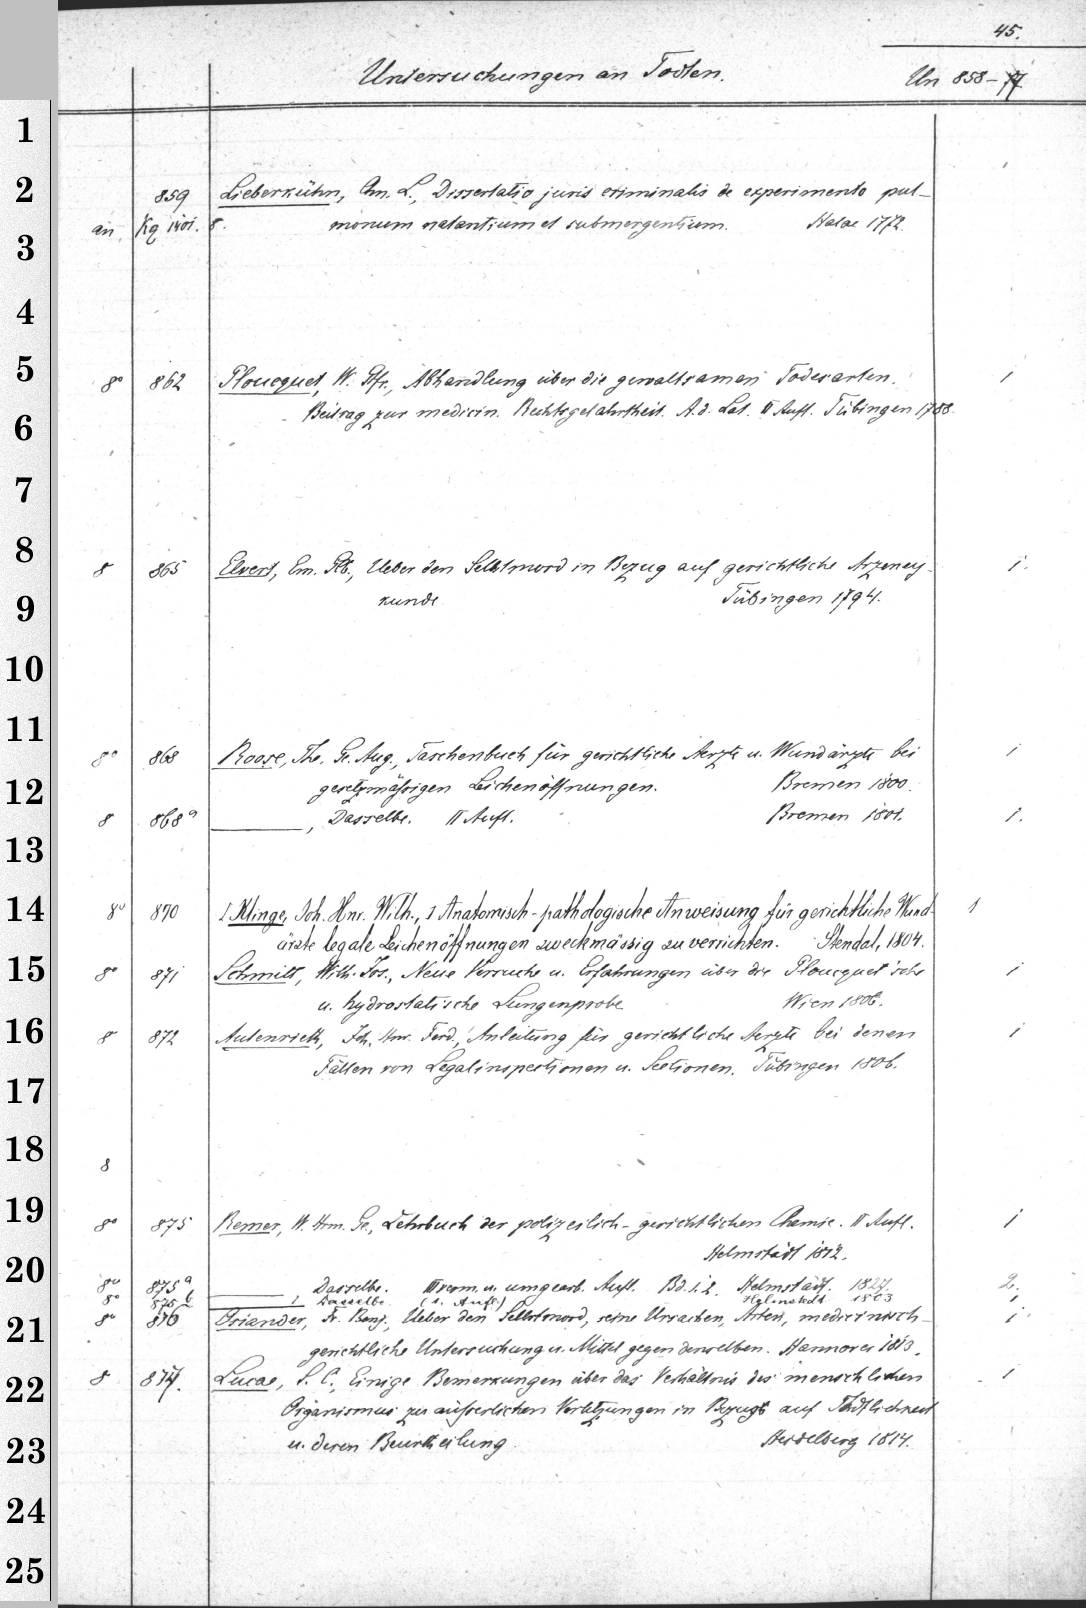 45.
Untersuchungen an Todten.
Un 858-77
1
2
3
4
5
6
7
8
9
10
11
12
13
14
15
16
17
18
19
20
21
22
23
24
25
859 Lieberkühn, Chn. L., Dissertatio juris criminalis de experimento pul-
an Kq 1401. 8. monum natantium et submergentium. Halae 1772.
8° 862 Ploucquet, W. Gfr., Abhandlung über die gewaltsamen Todesarten. 1
Beitrag zur medicin. Rechtsgelahrtheit. A. d. Lat. II Aufl. Tübingen 1788.
8 865 Elvert, Em. Glb., Ueber den Selbstmord in Bezug auf gerichtliche Arzeney- 1.
kunde Tübingen 1794.
8° 868 Roose, Thr. Ge. Aug., Taschenbuch für gerichtliche Aerzte u. Wundärzte bei 1
gesetzmäßigen Leichenöffnungen. Bremen 1800.
8 868a ———, Dasselbe. II Aufl. Bremen 1801. 1.
8° 870 1 Klinge, Joh. Hnr. Wilh., 1 Anatomisch-pathologische Anweisung für gerichtliche Wund- 1
ärzte legale Leichenöffnungen zweckmässig zu verrichten. Stendal, 1804.
8° 871 Schmitt, Wilh. Jos., Neue Versuche u. Erfahrungen über die Ploucquet'sche 1
u. hydrostatische Lungenprobe Wien 1806.
8 872 Autenrieth, Joh. Hnr. Ferd., Anleitung für gerichtliche Aerzte bei denen 1
Fällen von Legalinspectionen u. Sectionen. Tübingen 1806.
8
8° 875 Remer, W. Hrm. Ge., Lehrbuch der polizeilich-gerichtlichen Chemie. II Aufl. 1
Helmstädt 1812.
8° 875a ——— Dasselbe. III verm. u. umgearb. Aufl. Bd. 1. 2. Helmstädt. 1827. 2.
8° 875b ——— Dasselbe. (1. Aufl.) Helmstedt 1803 1
8° 876 Osiander, Fr. Benj., Ueber den Selbstmord, seine Ursachen, Arten, medicinisch- 1.
gerichtliche Untersuchung u. Mittel gegen denselben. Hannover 1813.
8 877. Lucae, S. C., Einige Bemerkungen über das Verhältnis des menschlichen 1
Organismus zu äusserlichen Verletzungen in Bezug auf Tödtlichkeit
u. deren Beurtheilung Heidelberg 1814.